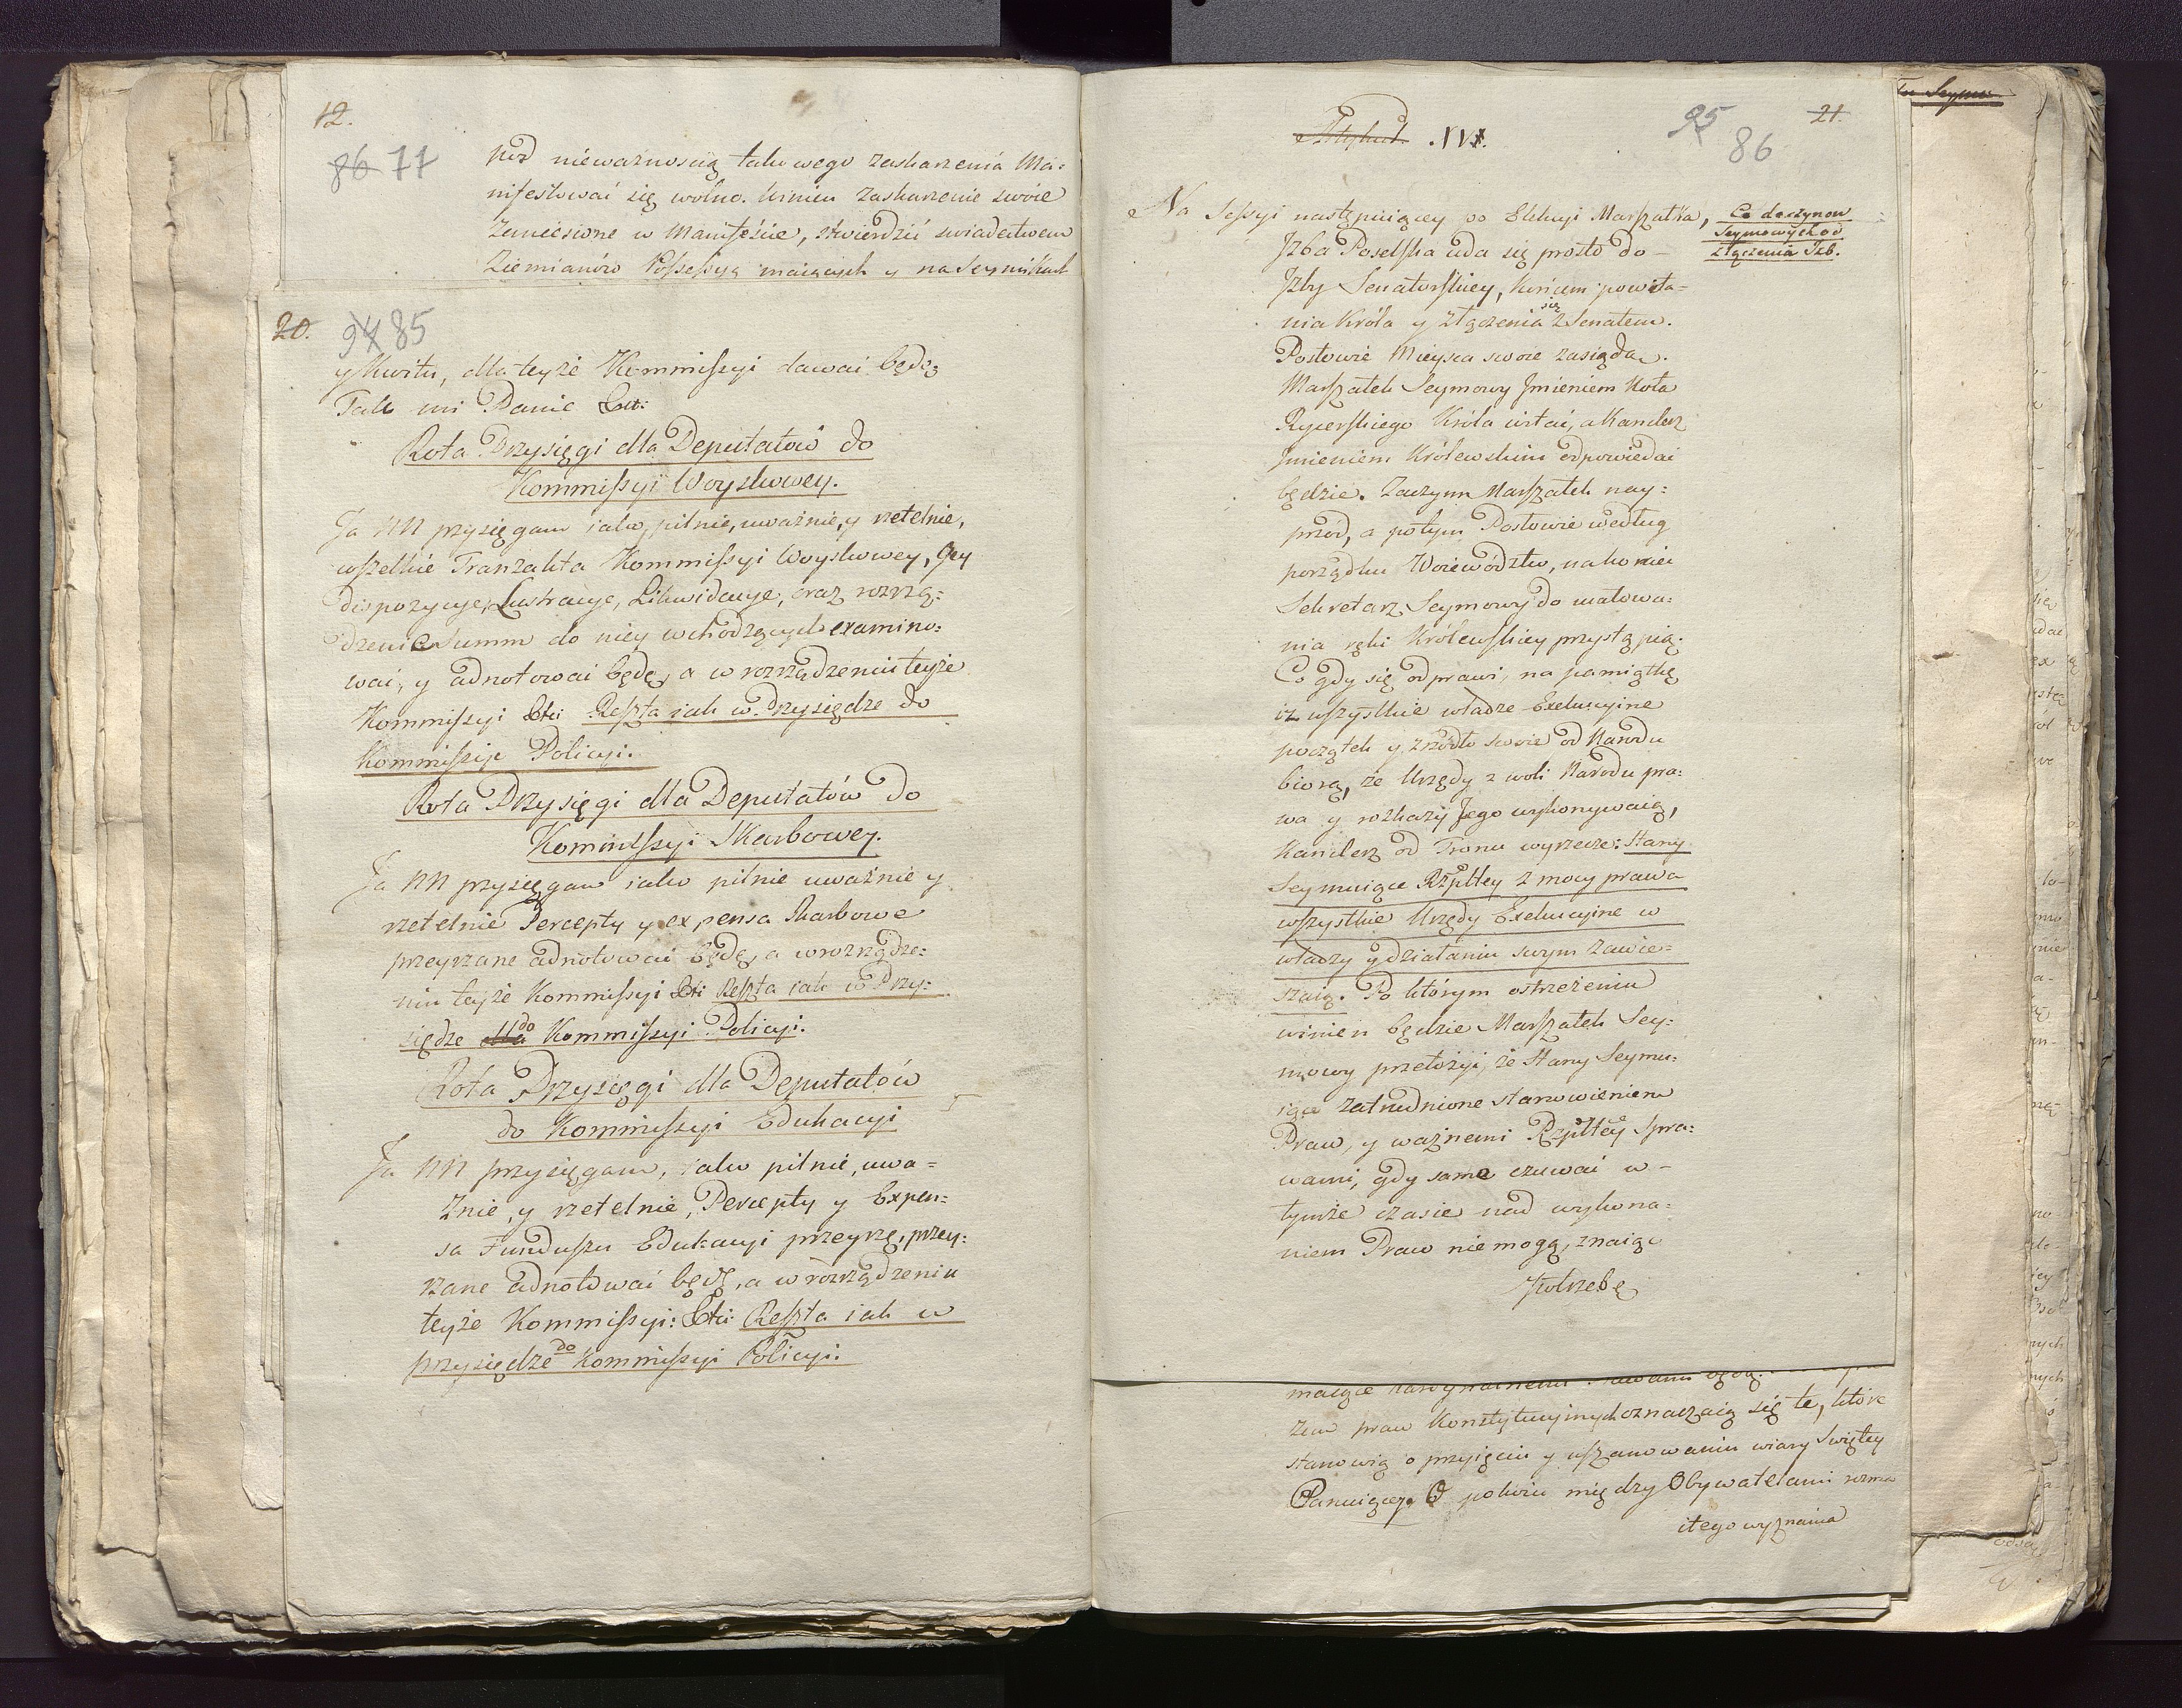 12.
86 77
pod nieważnością takowego zaskarżenia Ma=
nifestować się wolno. winien zaskarżenie swoie
zaniesione w Manifeście, stwierdzić swiadectwem
Ziemianów Possessyą maiących y na Seymikach
20.
94 85
y kwitu, dla teyże Kommissyi dawać będę
Tak mi Panie Ett:
Rota Przysięgi dla Deputatów do
Kommissyi Woyskowey.
Ja NN przysięgam iako, pilnie, uważnie, y rzetelnie,
wszelkie Tranzakta Kommissyi Woyskowey, Jey
dispozycye, Lustracye, Likwidacye, oraz rozrzą=
dzenie Summ do niey wchodzących examino=
wać, y adnotować będę, a w rozrządzeniu teyże
Kommissyi Ett: Reszta iak w Przysiędze do
Kommissyi Policyi.
Rota Przysięgi dla Deputatów do
Kommissyi Skarbowey.
Ja NN przysięgam iako pilnie uważnie y
rzetelnie Percepty y expensa Skarbowe
przeyrzane adnotować będę, a w rozrządze=
niu teyże Kommissyi Ett: Reszta iak w Przy=
siędze dla do Kommissyi Policyi.
Rota Przysięgi dla Deputatów
do Kommissyi Edukacyi
Ja NN przysięgam, iako pilnie, uwa=
żnie, y rzetelnie, Percepty y Expen=
sa Funduszu Edukacyi przeyrzę, przey=
rzane adnotować będę, a w rozrządzeniu
teyże Kommissyi: Ett: Reszta iak w
przysiędze do Kommissyi Policyi.
Artykuł XVI.
95 86
21.
Na Sessyi następuiącey po Elekcyi Marszałka,
Co do czynow
Seymowych od
złączenia Izb.
Jzba Poselska uda się prosto do
Jzby Senatorskiey, końcem powita=
nia Króla y złączenia się z Senatem.
Posłowie Mieysca swoie zasiędą.
Marszałek Seymowy Jmieniem Koła
Rycerskiego Króla witać, a Kanclerz
Jmieniem Królewskim odpowiedać
będzie. Zaczym Marszałek nay=
przód, a potym Posłowie według
porządku Woiewództw, nakoniec
Sekretarz Seymowy do całowa=
nia ręki Królewskiey przystąpią.
Co gdy się odprawi, na pamiątkę
iż wszystkie władze Exekucyine
początek y źródło swoie od Narodu
biorą, że Urzędy z woli Narodu pra=
wa y rozkazy Jego wykonywaią,
Kanclerz od Tronu wyrzecze: Stany
Seymuiące Rzpltey z mocy prawa
wszystkie Urzędy Exekucyine w
władzy y działaniu swym zawie=
szaią. Po którym ostrzeżeniu
winien będzie Marszałek Sey=
mowy przełożyć, że Stany Seymu=
iące zatrudnione stanowieniem
Praw, y ważnemi Rzpltey Spra=
wami, gdy same czuwać w
tymże czasie nad wykona=
niem Praw nie mogą, znaiąc
potrzebę
zem praw Konstytucyinych oznaczaią się te, które
stanowią o przyięciu y uszanowaniu wiary Swiętey
Panuiącey. O pokoiu między Obywatelami rozma
itego wyznania